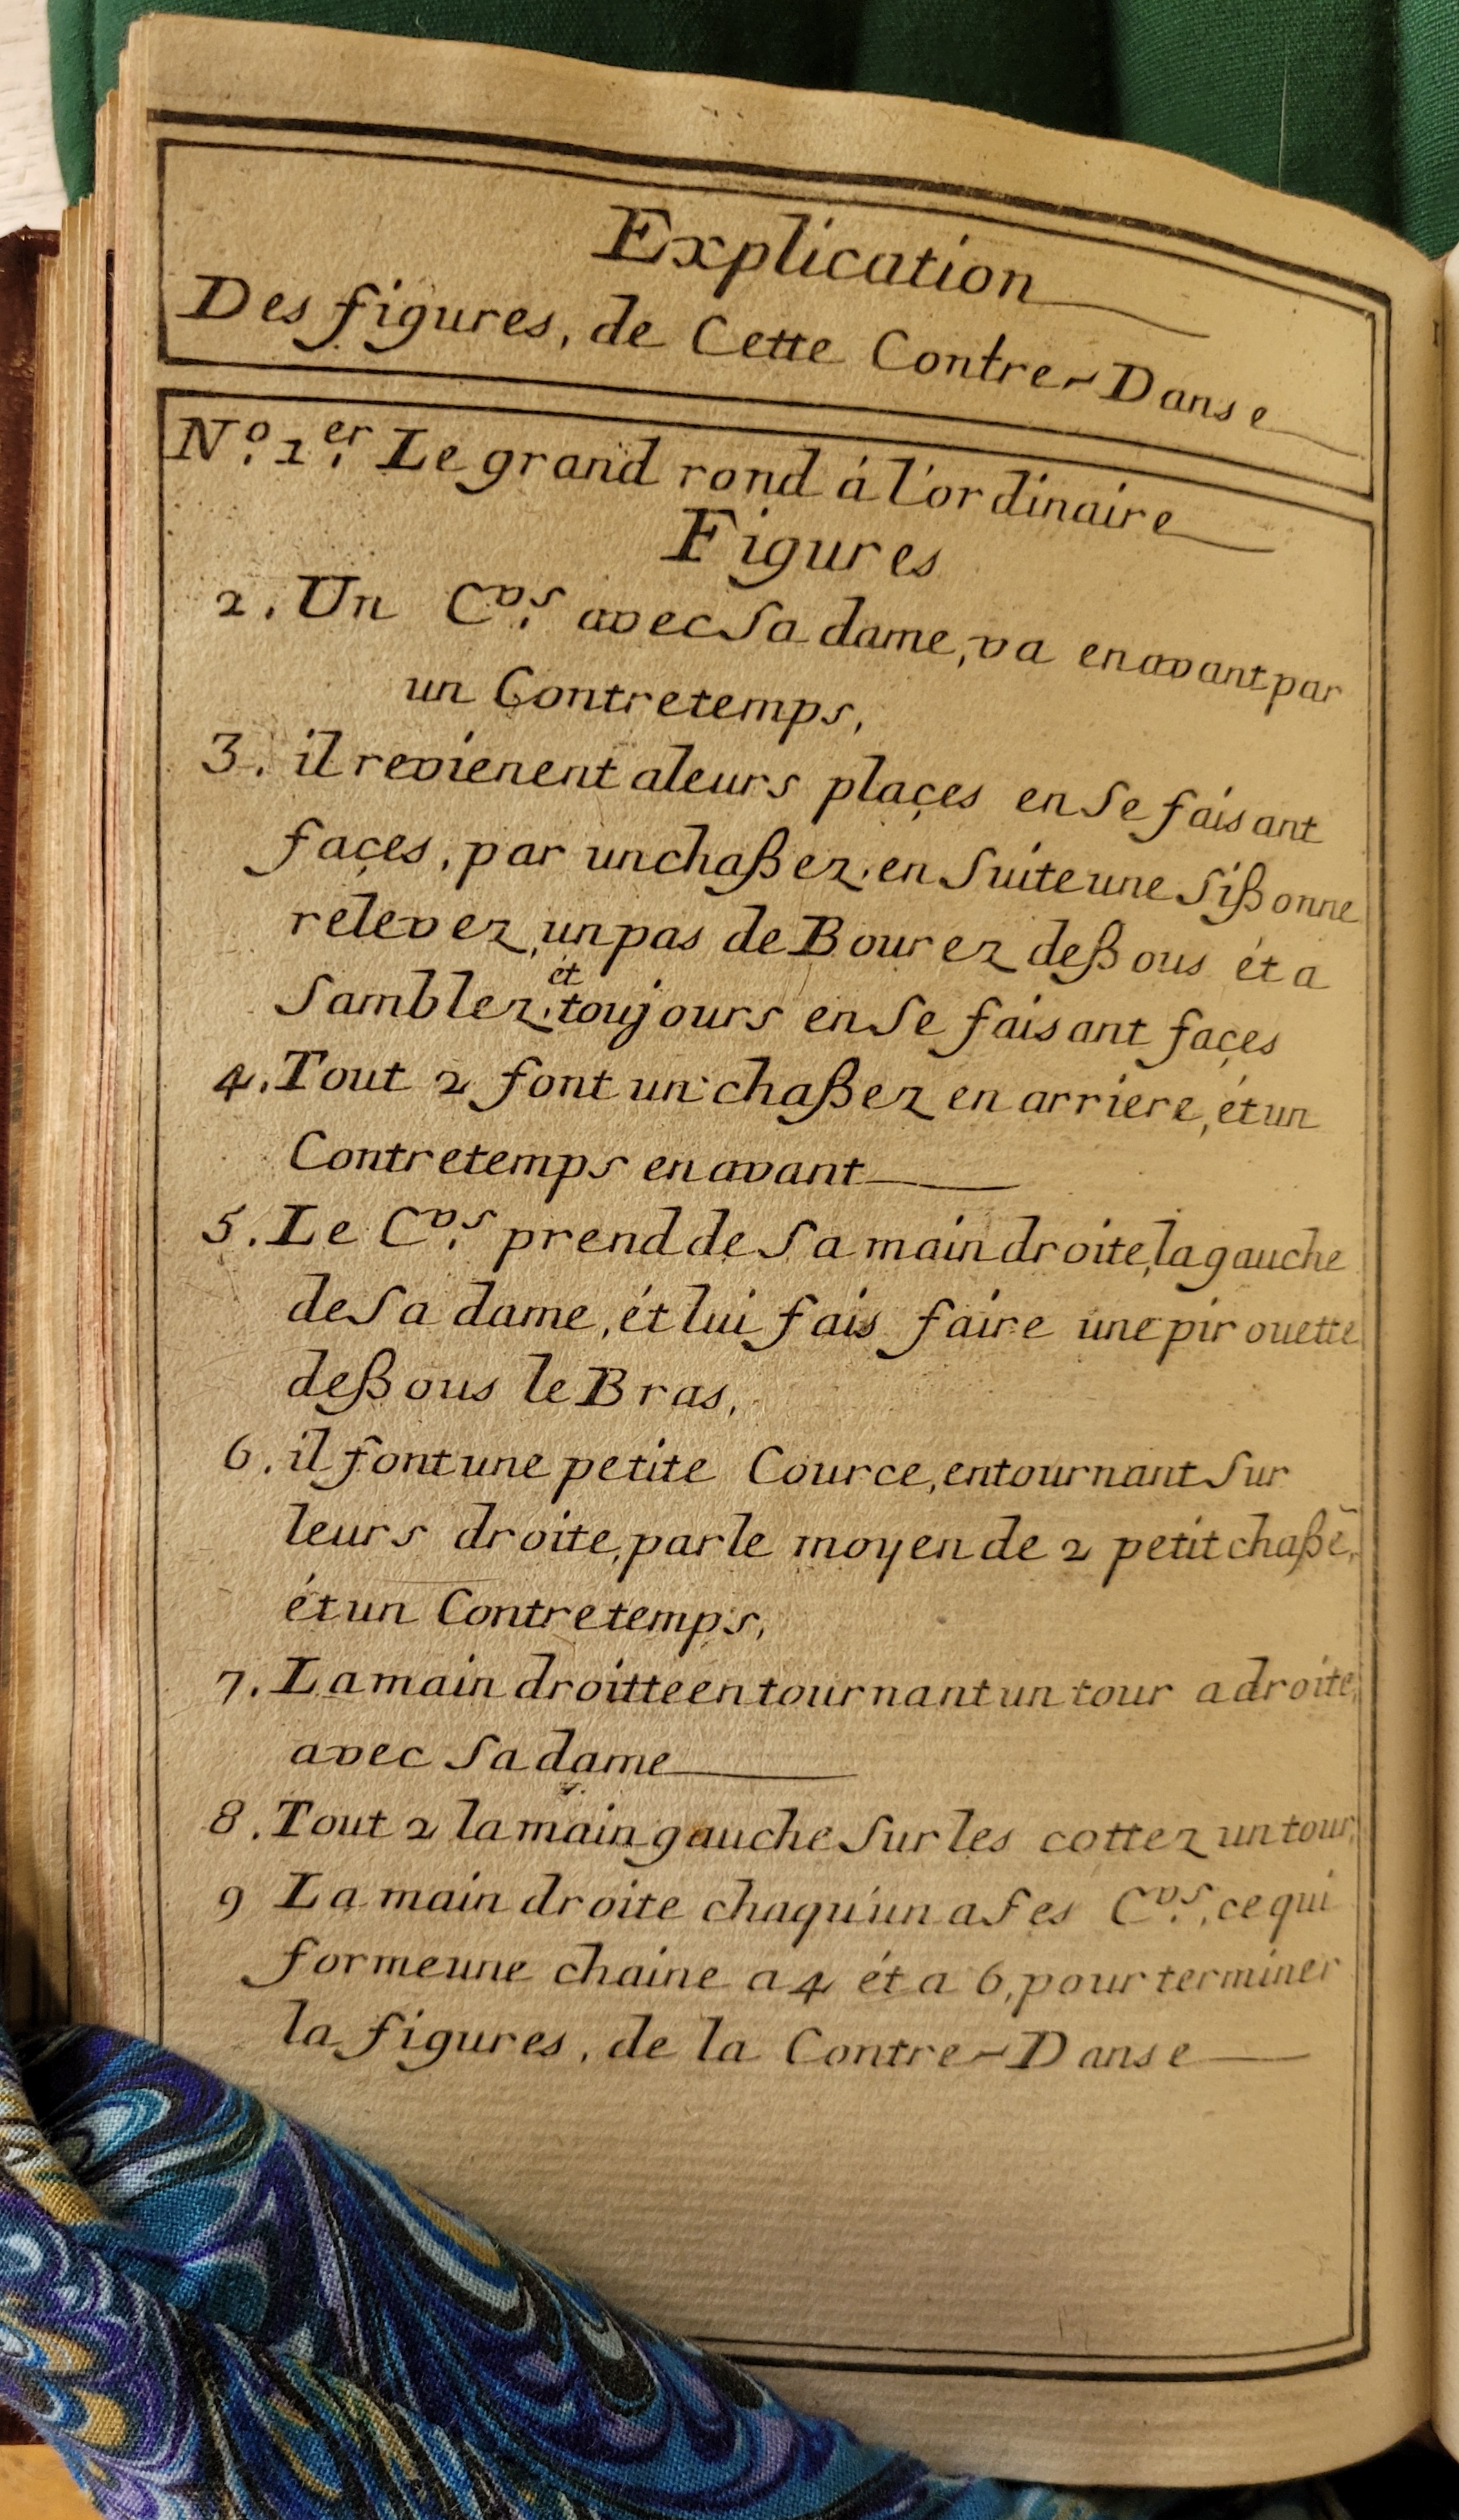 Explication
Des figures, de Cette Contre-Danse
N.º 1.er Le grand rond á l'ordinaire
Figures
2. Un C.vs avec Sa dame, va en avant par
un Contretemps,
3. il revienent a leurs plaçes en Se faisant
façes, par un chaßez, en Suite une Sißonne
relevez, un pas de Bourez deßous ét a
Samblez, ét toujours en Se faisant façes
4. Tout 2 font un chaßez en arriere, ét un
Contretemps en avant
5. Le C.vs prend de Sa main droite, la gauche
de Sa dame, ét lui fais faire une pirouette
deßous le Bras,
6. il font une petite Cource, en tournant Sur
leurs droite, par le moyen de 2 petit chaßẽ,
ét un Contretemps,
7. La main droitte en tournant un tour a droite,
avec Sa dame
8. Tout 2 la main gauche Sur les cottez un tour,
9 La main droite chaqu'un a Ses C.vs, ce qui
forme une chaine a 4 ét a 6, pour terminer
la figures, de la Contre-Danse